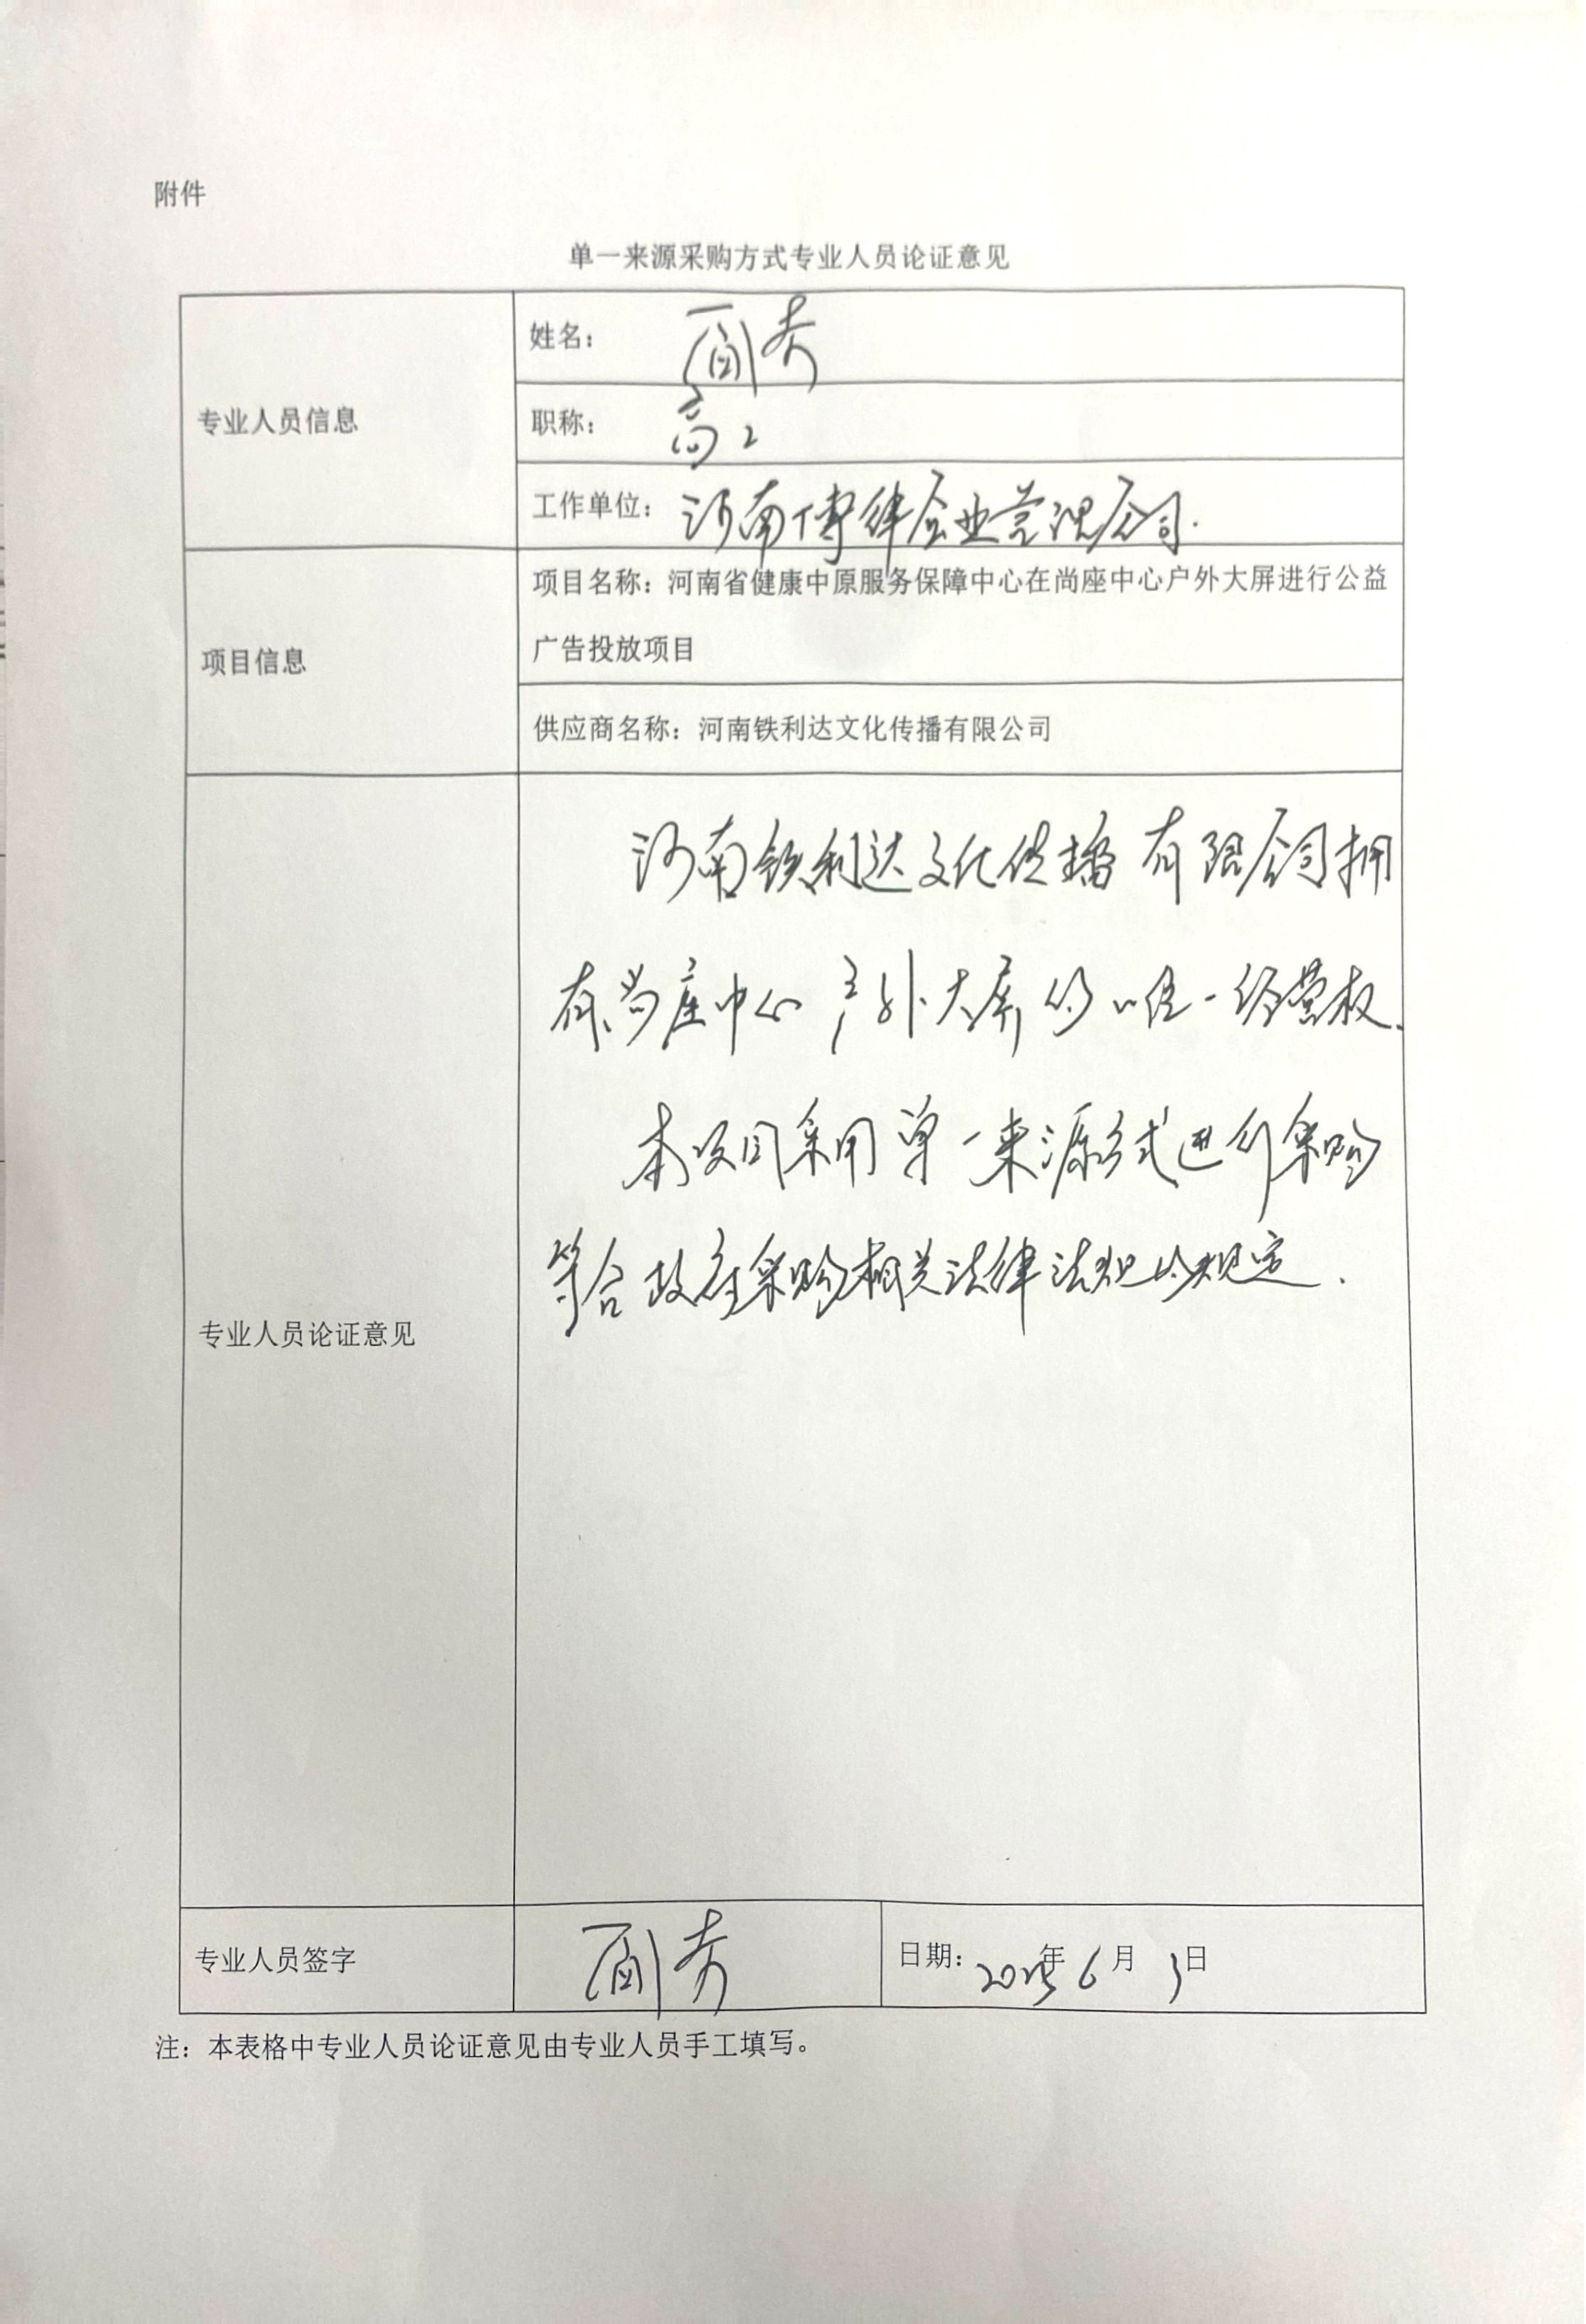 附件
单一来源采购方式专业人员论证意见
专业人员信息
姓名：
职称：高工
工作单位：河南博律企业管理公司.
项目信息
项目名称：河南省健康中原服务保障中心在尚座中心户外大屏进行公益
广告投放项目
供应商名称：河南铁利达文化传播有限公司
专业人员论证意见
河南铁利达文化传播有限公司拥
有尚座中心户外大屏的唯一经营权.
本项目采用单一来源方式进行采购
符合政府采购相关法律法规的规定.
专业人员签字
日期：2025年6月3日
注：本表格中专业人员论证意见由专业人员手工填写。